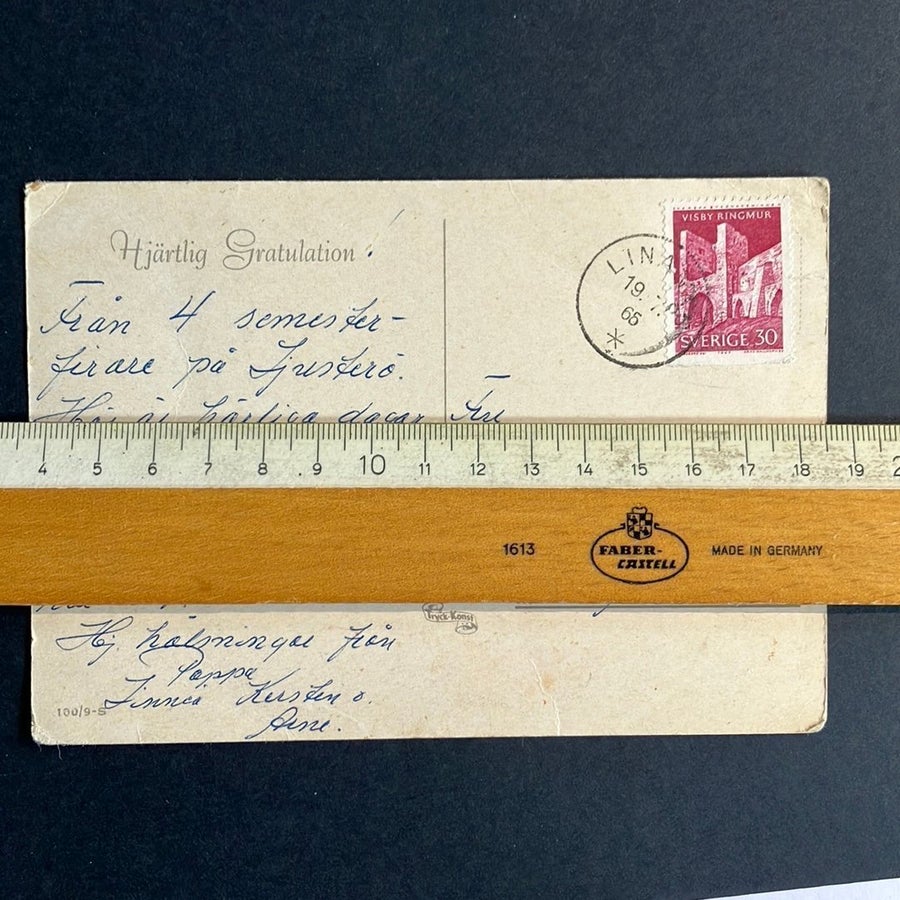 Hjärtlig Gratulation !
VISBY RINGMUR
LINA
19. 7.
66
*
SVERIGE 30
Från 4 semester-
firare på Ljusterö.
Hoj är härliga dagar
Fru
4 5 6 7 8 9 10 11 12 13 14 15 16 17 18 19 2
1613
FABER-
CASTELL
MADE IN GERMANY
Tryck-Konst
Hj hälsningar från
Pappa
Linnéa Kersten o.
Arne.
100/9-S